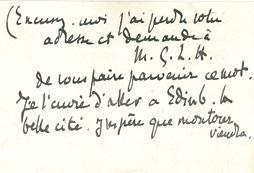 (Excusez-moi j'ai perdu votre
adresse et demandé à
M. G. L. H.
de vous faire parvenir ce mot.
Je l'envie d'aller à Edimb. la
belle cité. J'espère que mon tour
viendra.